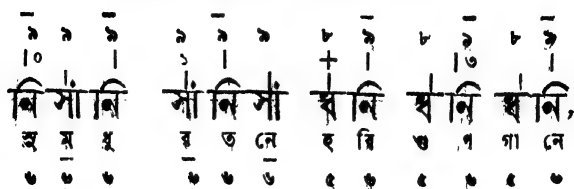 ৯ ৯ ৯ ৯ ৯ ৯ ৮ ৯ ৮ ৯ ৮ ৯
।০ । ১ । + । ।৩ ।
নি সাঁ নি সাঁ নি সাঁ ধ নি ধ নি ধ নি,
সু ম ধু র ত নে হ রি গু ণ গা নে
৬ ৬ ৬ ৬ ৬ ৬ ৫ ৬ ৫ ৬ ৫ ৬